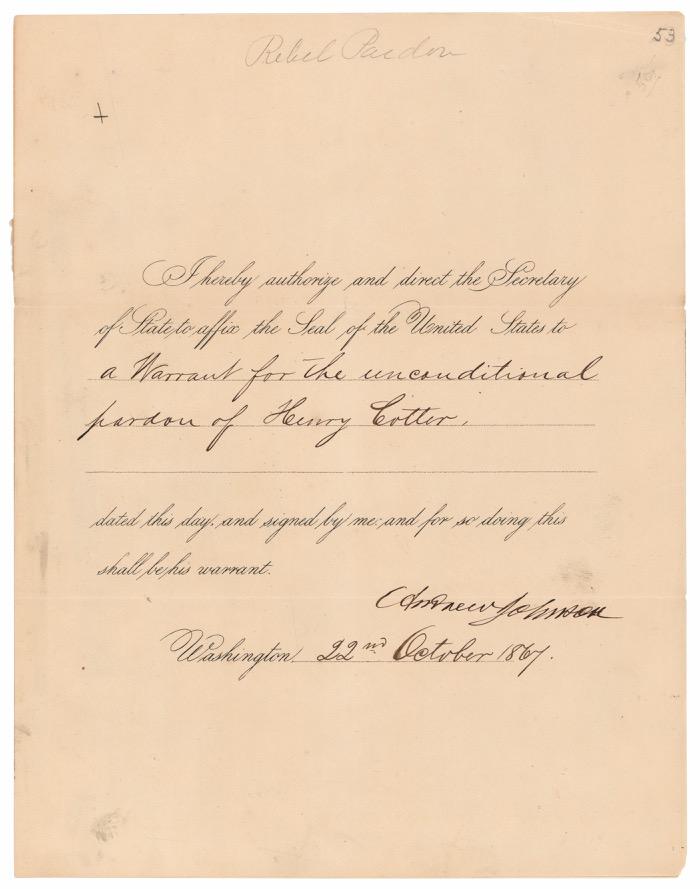 Rebel Pardon
53
I hereby authorize and direct the Secretary
of State to affix the Seal of the United States to
a Warrant for the unconditional
pardon of Henry Cotter.
dated this day, and signed by me: and for so doing this
shall be his warrant.
Andrew Johnson
Washington, 22nd October 1867.